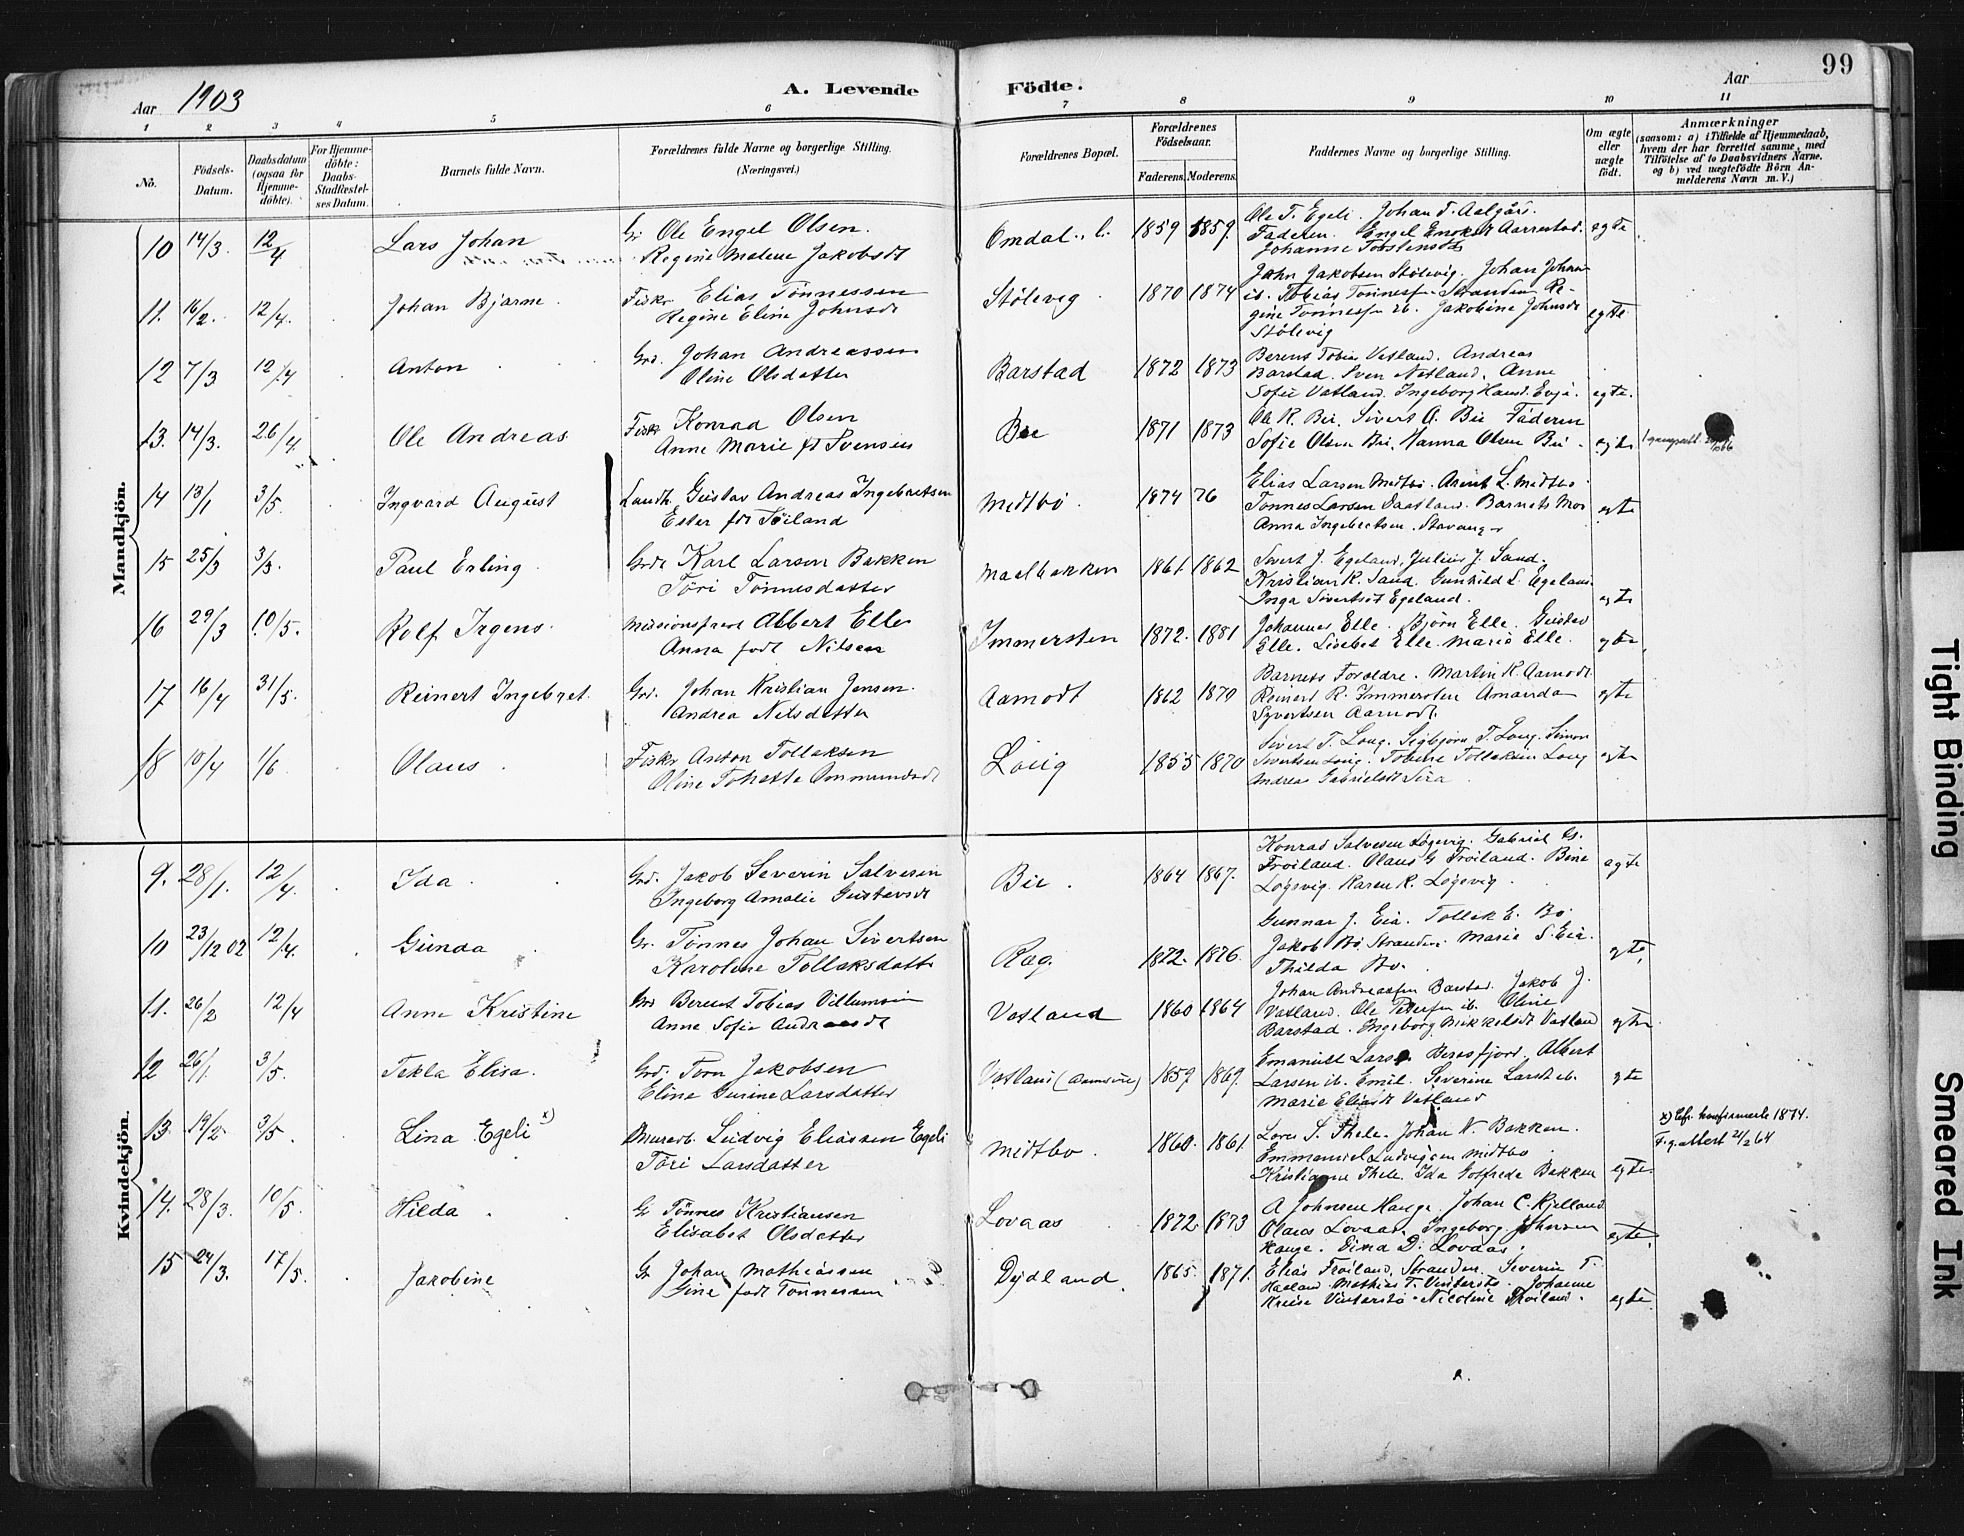 99
Aar 1903
A. Levende Födte.
Aar
1 2 3 4 5 6 7 8 9 10 11
No.
Födsels-Datum.
Daabsdatum (ogsaa for Hjemme-döbte).
For Hjemme-döbte: Daabs-Stadfæstel-ses Datum.
Barnets fulde Navn.
Forældrenes fulde Navne og borgerlige Stilling.
(Næringsvei.)
Forældrenes Bopæl.
Forældrenes Födselsaar.
Faderens. Moderens.
Faddernes Navne og borgerlige Stilling.
Om ægte eller uægte födt.
Anmærkninger
(saasom: a) i Tilfælde af Hjemmedaab, hvem der har forrettet samme, med Tilföielse af to Daabsvidners Navne, og b) ved uægtefödte Börn An-melderens Navn m. V.)
Mandkjön.
10 14/3. 12/4 Lars Johan Gr Ole Engel Olsen. Regine Malene Jakobsdt Omdal. 1859 1859. Ole T. Egeli. Johan T. Aalgårs.
Faderen. Engel Enoksen Aarrestad. ægte
Johanne
11. 16/2. 12/4. Johan Bjarne. Fiskr Elias Tönnessen Regine Eline Johnsdt Stölevig 1870 1874 John Jakobsen Stölevig. Johan
ib. Tobias Tönnessen Stranden Re-
gine Tönnessen ib. Jakobine Johnsdt ægte
Stölevig
12 7/3 12/4 Anton Grd. Johan Andreassen Oline Olsdatter Barstad 1872 1873 Berent Tobias Vatland. Andreas
Barstad. Sven Netland. Anne
Sofie Vatland. Ingeborg Hansd. Evje. ægte.
13. 14/3. 26/4. Ole Andreas Fiskr Konrad Olsen Anne Marie fdt Svensen Bie 1871 1873 Ole R. Bie. Sivert O. Bie Faderen
Sofie Olsen Bie. Hanna Olsen Bie ægte
14 13/1 3/5. Ingvard August Landh. Gustav Andreas Ingebretsen Ester fdt Töiland Medtbö 1874 76 Elias Larsen Medtbö. Arent L. Medtbö
Tönnes Larsen Saatland. Barnets Mor ægte
Anna Ingebretsen. Stavanger
15 25/3 3/5. Paul Erling Grdb Karl Larsen Bakken Töri Tönnesdatter Maalbakken 1861 1862 Sivert J. Egeland, Julius J. Sand.
Kristian K. Sand. Gunhild L. Egeland
Inga Sivertsdt Egeland. ægte
16 29/3 10/5. Rolf Irgens Missionspræd Albert Elle Anna født Nilsen Immersten 1872. 1881 Johannes Elle. Björn Elle. Gustav
Elle. Lisebet Elle. Marie Elle. ægte,
17 16/4 31/5. Reinert Ingebret. Grd. Johan Kristian Jensen. Andrea Nilsdatter Aamodt 1862 1870 Barnets Forældre. Martin K. Aamodt
Reinert R. Immersten Amanda ægte
Syvertsen Aamodt.
18 10/4 1/6 Olaus Fiskr Anton Tollaksen Oline Tohette Ommundsdt Löiig 1855 1870 Sivert T. Loug. Sigbjörn T. Loug. Simon
Sivertsen Loug. Tobine Tollaksen Loug ægte
Andrea Gabrielsdt Sira
Kvindekjön.
9. 28/1. 12/4. Ida Grd. Jakob Severin Salvesen Ingeborg Amalie Gustavsdt Bie. 1864 1867. Konrad Salvesen Løgevig. Gabriel Gs.
Fröiland. Olaus G Fröiland. Bine ægte
Løgevig. Karen K. Løgevig.
10 23/12 02 12/4. Gunda Gr. Tönnes Johan Sivertsen Karoline Tollaksdatter Ræg. 1872. 1876. Gunnar J. Eia. Tollak E. Bö.
Jakob Bö. Stranden. Marie S. Eia. ægte,
Thilda Bö.
11. 26/2 12/4 Anne Kristine Grd Berent Tobias Villumsen Anne Sofie Andreasdt Vatland 1860 1864 Johan Andreassen Barstad. Jakob J.
Vatland. Ole Pedersen ib. Oline
Barstad. Ingeborg Mikkelsdt Vatland ægte
12 26/1. 3/5. Tekla Elisa. Grd. Torn Jakobsen Eline Gurine Larsdatter Vatland 1859 1869. Emanuel Larsen Berrefjord. Albert
Larsen ib. Emil. Severine Larsdt ib. ægte
Marie Eliasdt Vatland
13 19/2 3/5. Lina Egeli x) Murerb. Ludvig Eliassen Egeli Töri Larsdatter Medtbö. 1860. 1861 Lars S. Thele. Johan N. Bakken.
Emmanuel Ludvigsen Midtbö
Kristianne Thele. Ida Gotfreda Bakken ægte. x) Cfr. konfirmerte 1874.
14. 28/3. 10/5. Hilda Gr Tönnes Kristiansen Elisabet Olsdatter Lovaas 1872. 1873 A Johnsen Hauge. Johan C. Kjelland.
Olaus Lovaas. Ingeborg Johnsen ægte.
Hauge. Eina D. Lovaas.
15 24/3. 17/5. Jakobine Gr Johan Mathiassen Gine født Tönnessen Dydland 1865. 1871. Elias Fröiland. Stranden. Severin T.
Haaland. Mathias T. Vinterstö. Johanne
Kruse Vinterstö. Nicoline Fröiland. ægte.
Tight Binding
Smeared Ink